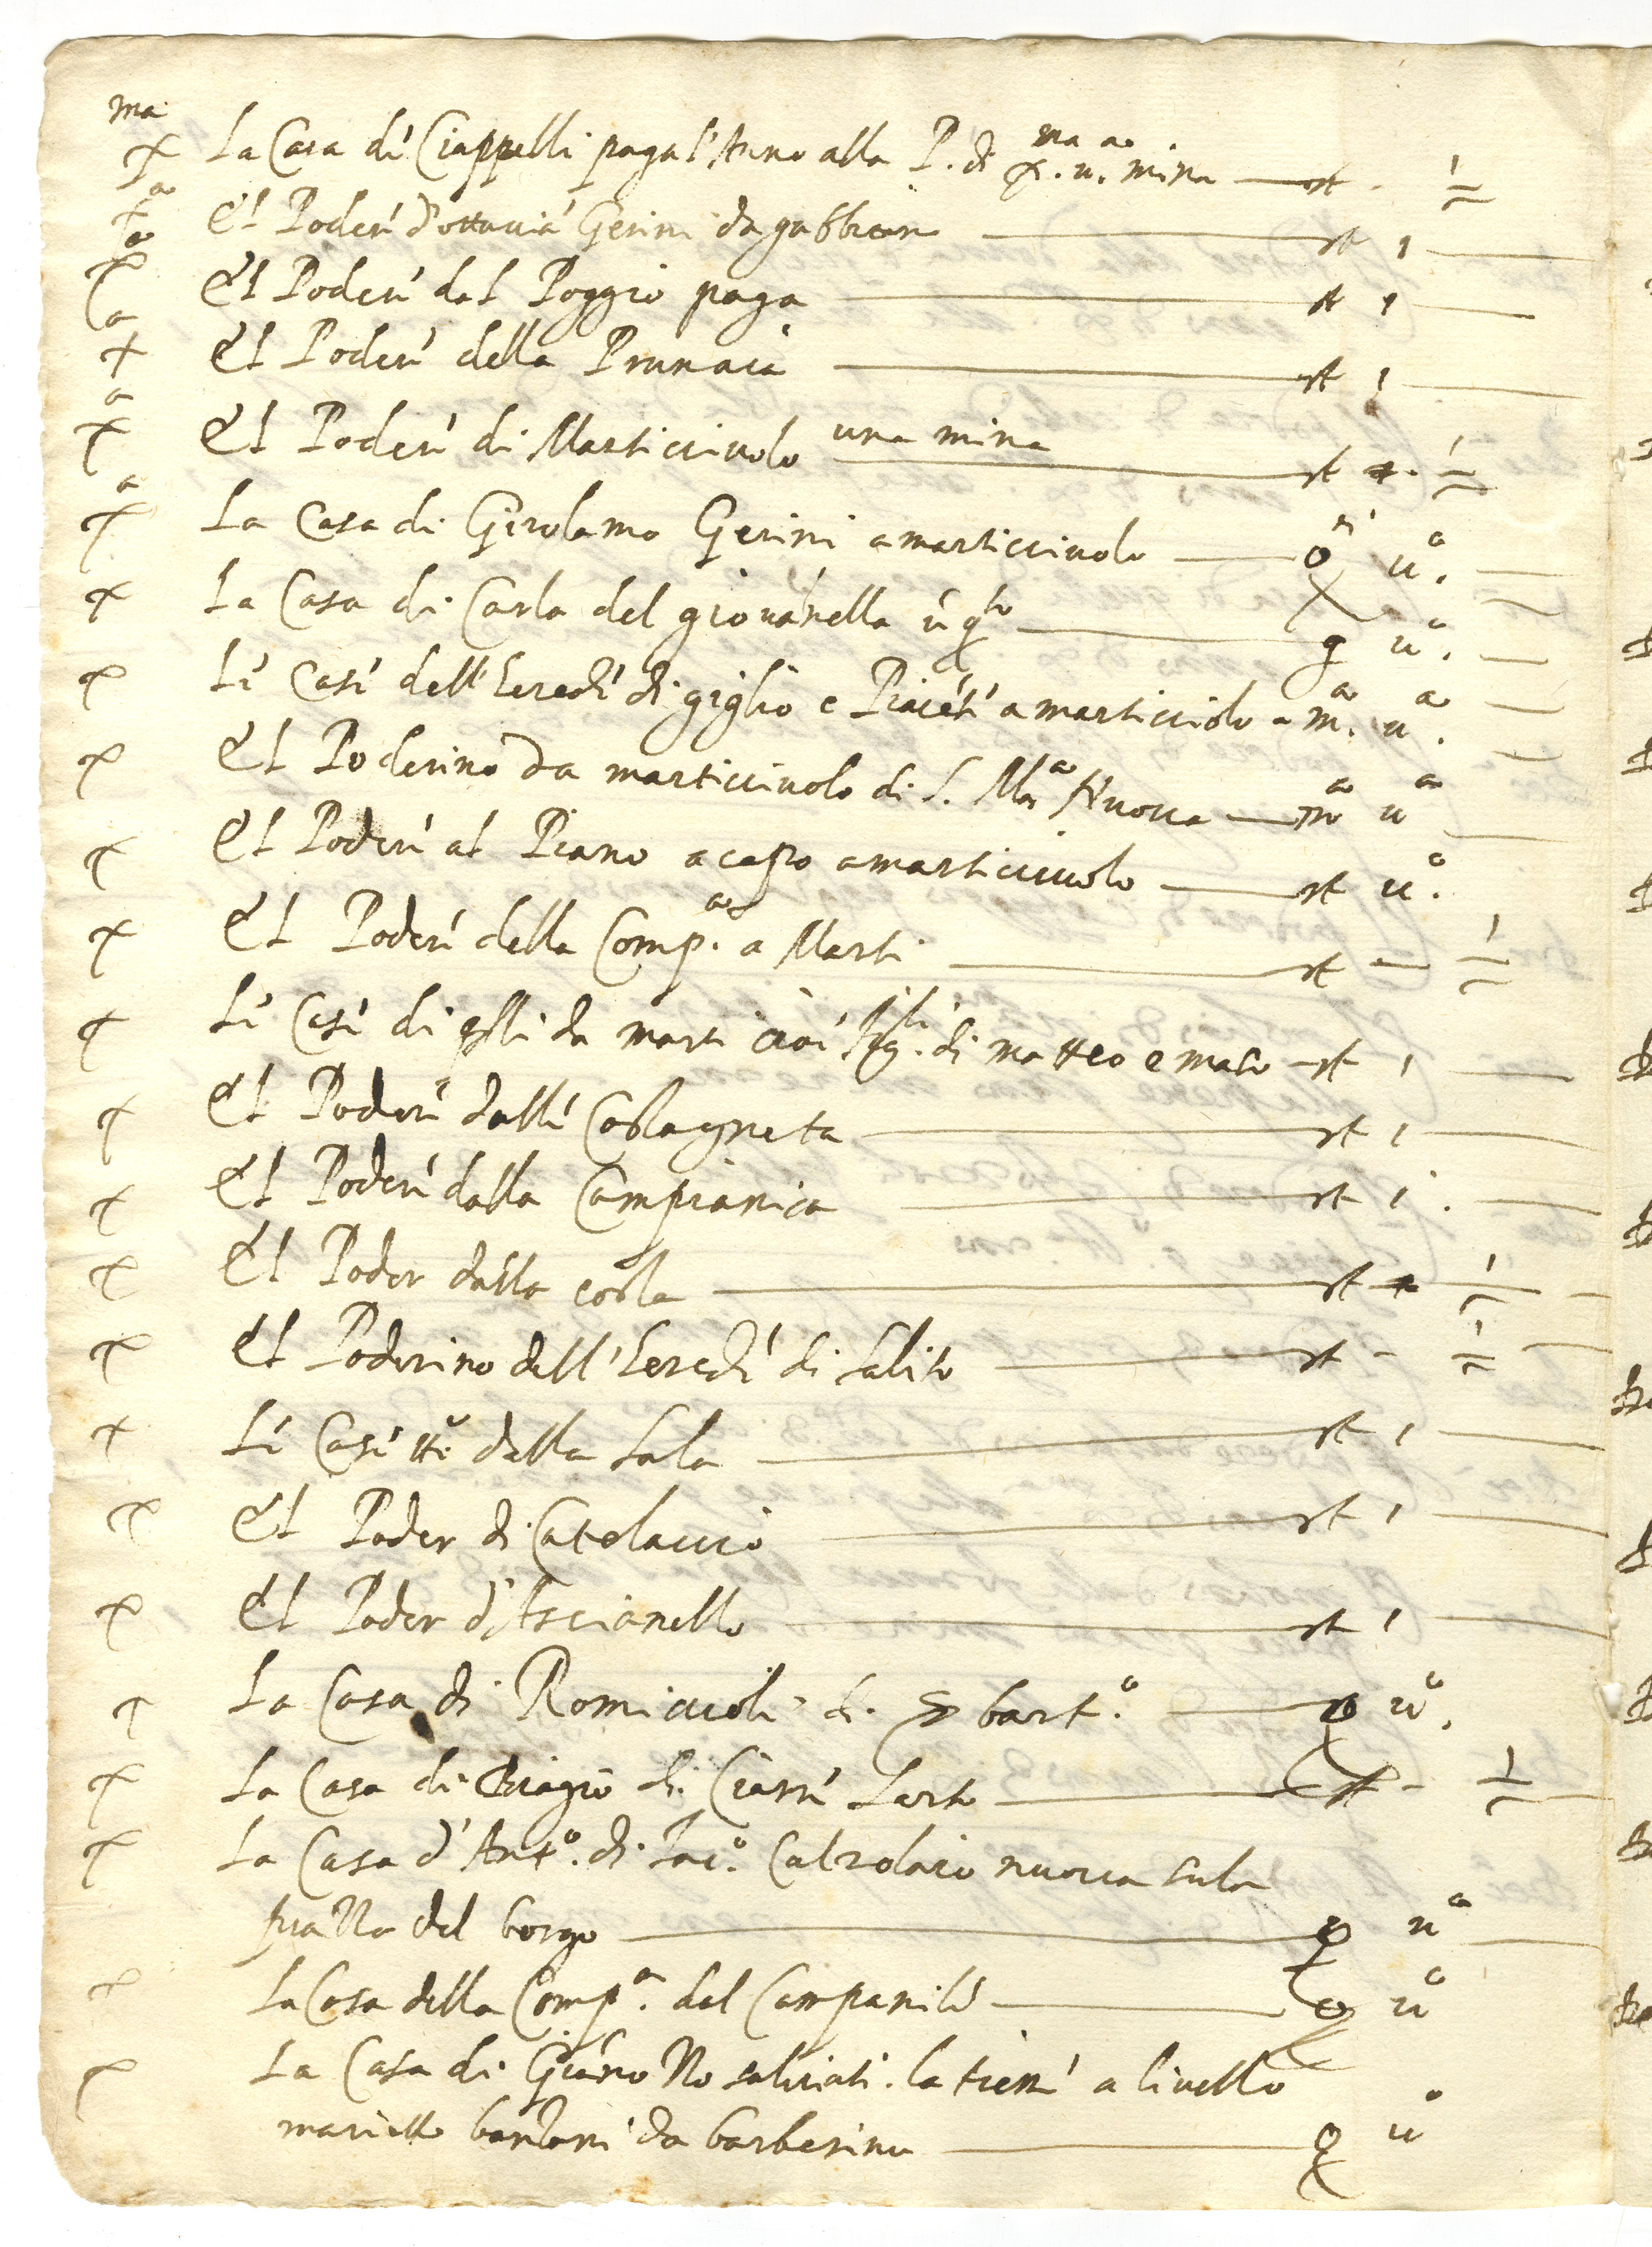 ma
La Casa di Ciappelli paga l'Anno alla P. di ma ao mina st - 1/2
El Poderé d'ottavia Gerini da gabbiano st 1
El Poderé dal Poggio paga st 1
El Poderé della Prunaia st 1
El Poderé di Marticcivolo una mina st 1/2
La Casa di Girolamo Gerini a marticcivolo uo.
La Casa di Carlo del giovanella ú qto q uo.
Lé Casé dell'Heredi di giglio e a marticciolo - ma. ua.
El Poderino da marticcivolo di S. Ma Nuova ma ua
El Poderé al Piano a capo a marticcivolo st uo.
El Poderé della Comp.a a Marti st - 1/2
Lé Casé di qlli da marti cioé di matteo e maso st 1
El Poderé dallé Castagneta st 1
El Poderé dalla Campianica st i.
El Poder dalla costa st 1/2
El Poderino dell'Heredi di Salito st - 1/2
Lé Casé tté della Sala st 1
El Poder di Catelaccio st 1
El Poder d'Ascianello st 1
La Casa di Romiccioli di bart.o q uo.
La Casa di Biagio di Ciarré Sarto st - 1/2
La Casa d'Ant.o di Iac.o Calzolaio nuova sula
piazza del borgo q ua
La Casa della Comp.a del Campanile q uo
La Casa di salviati. la tiené a livello
mariotto da barberino q uo